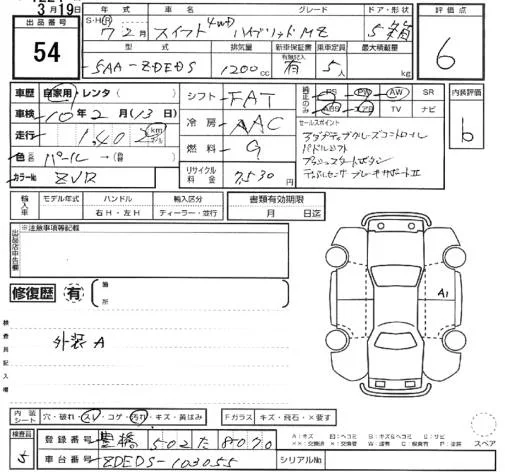 3月19日
出品番号
54
年式 車名 グレード ドア・形状
S・H・R 7 2月 スイフト 4WD ハイブリッドMZ 5
型式 排気量 新車保証書 有無記入 乗車定員 最大積載量
5AA-ZDEDS 1200cc 有 5人 kg
評価点
6
車歴 自家用・レンタ( )
車検 10年2月(13日)
走行 1,402 km
色 パール →( )
カラーNo. ZVR
シフト FAT
冷房 AAC
燃料 G
リサイクル料金 7,530円
純正のみ PS PW AW SR
ABS TV ナビ
セールスポイント
アダプティブクルーズコントロール
パドルシフト
プッシュスタートボタン
デュアルセンサーブレーキサポートII
内装評価
b
輸入車 モデル年式 ハンドル 輸入区分
右H・左H ディーラー・並行
書類有効期限
月 日迄
出品店申告欄
※注意事項等記載
修復歴 有 箇所
検査員記入欄
外装A
A1
内装シート 穴・破れ・スレ・コゲ・汚れ・キズ・黄ばみ
Fガラス キズ・飛石・×要す
スペア
検査員
5
登録番号 豊橋 502 た 8070
車台番号 ZDEDS-103055
シリアルNo.